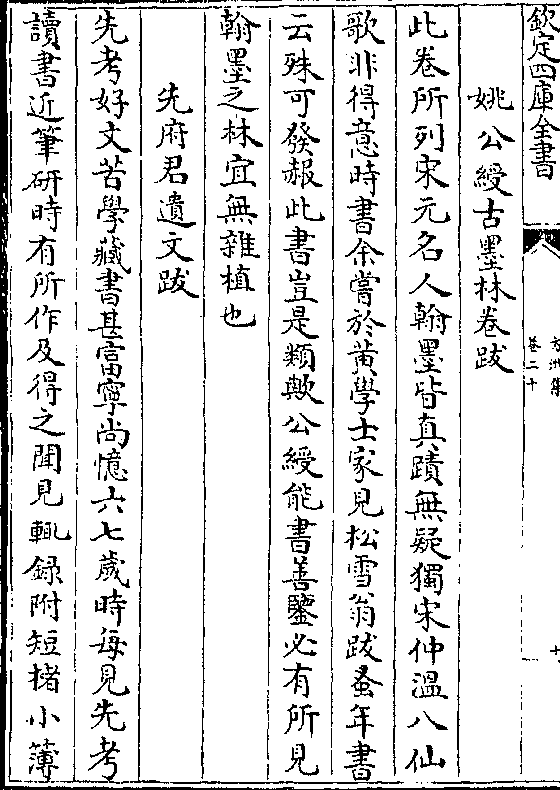 欽定四庫全書
卷二十
姚公綬古墨林卷跋
此卷所列宋元名人翰墨皆真蹟無疑獨宋仲溫八仙
歌非得意時書余嘗於黄學士家見松雪翁跋蚤年書
云殊可發赧此書豈是類歟公綬能書善鑒必有所見
翰墨之林宜無雜植也
先府君遺文跋
先考好文苦學藏書甚富寧尚憶六七歲時每見先考
讀書近筆研時有所作及得之聞見輒錄附短楮小簿